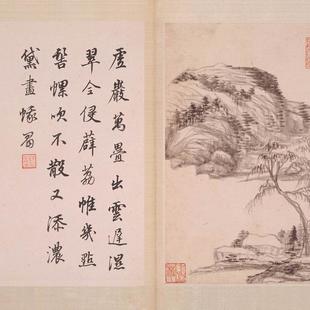 虛巖萬疊出雲遲濕
翠今侵薜荔帷幾點
髻螺吹不散又添濃
黛畫修眉